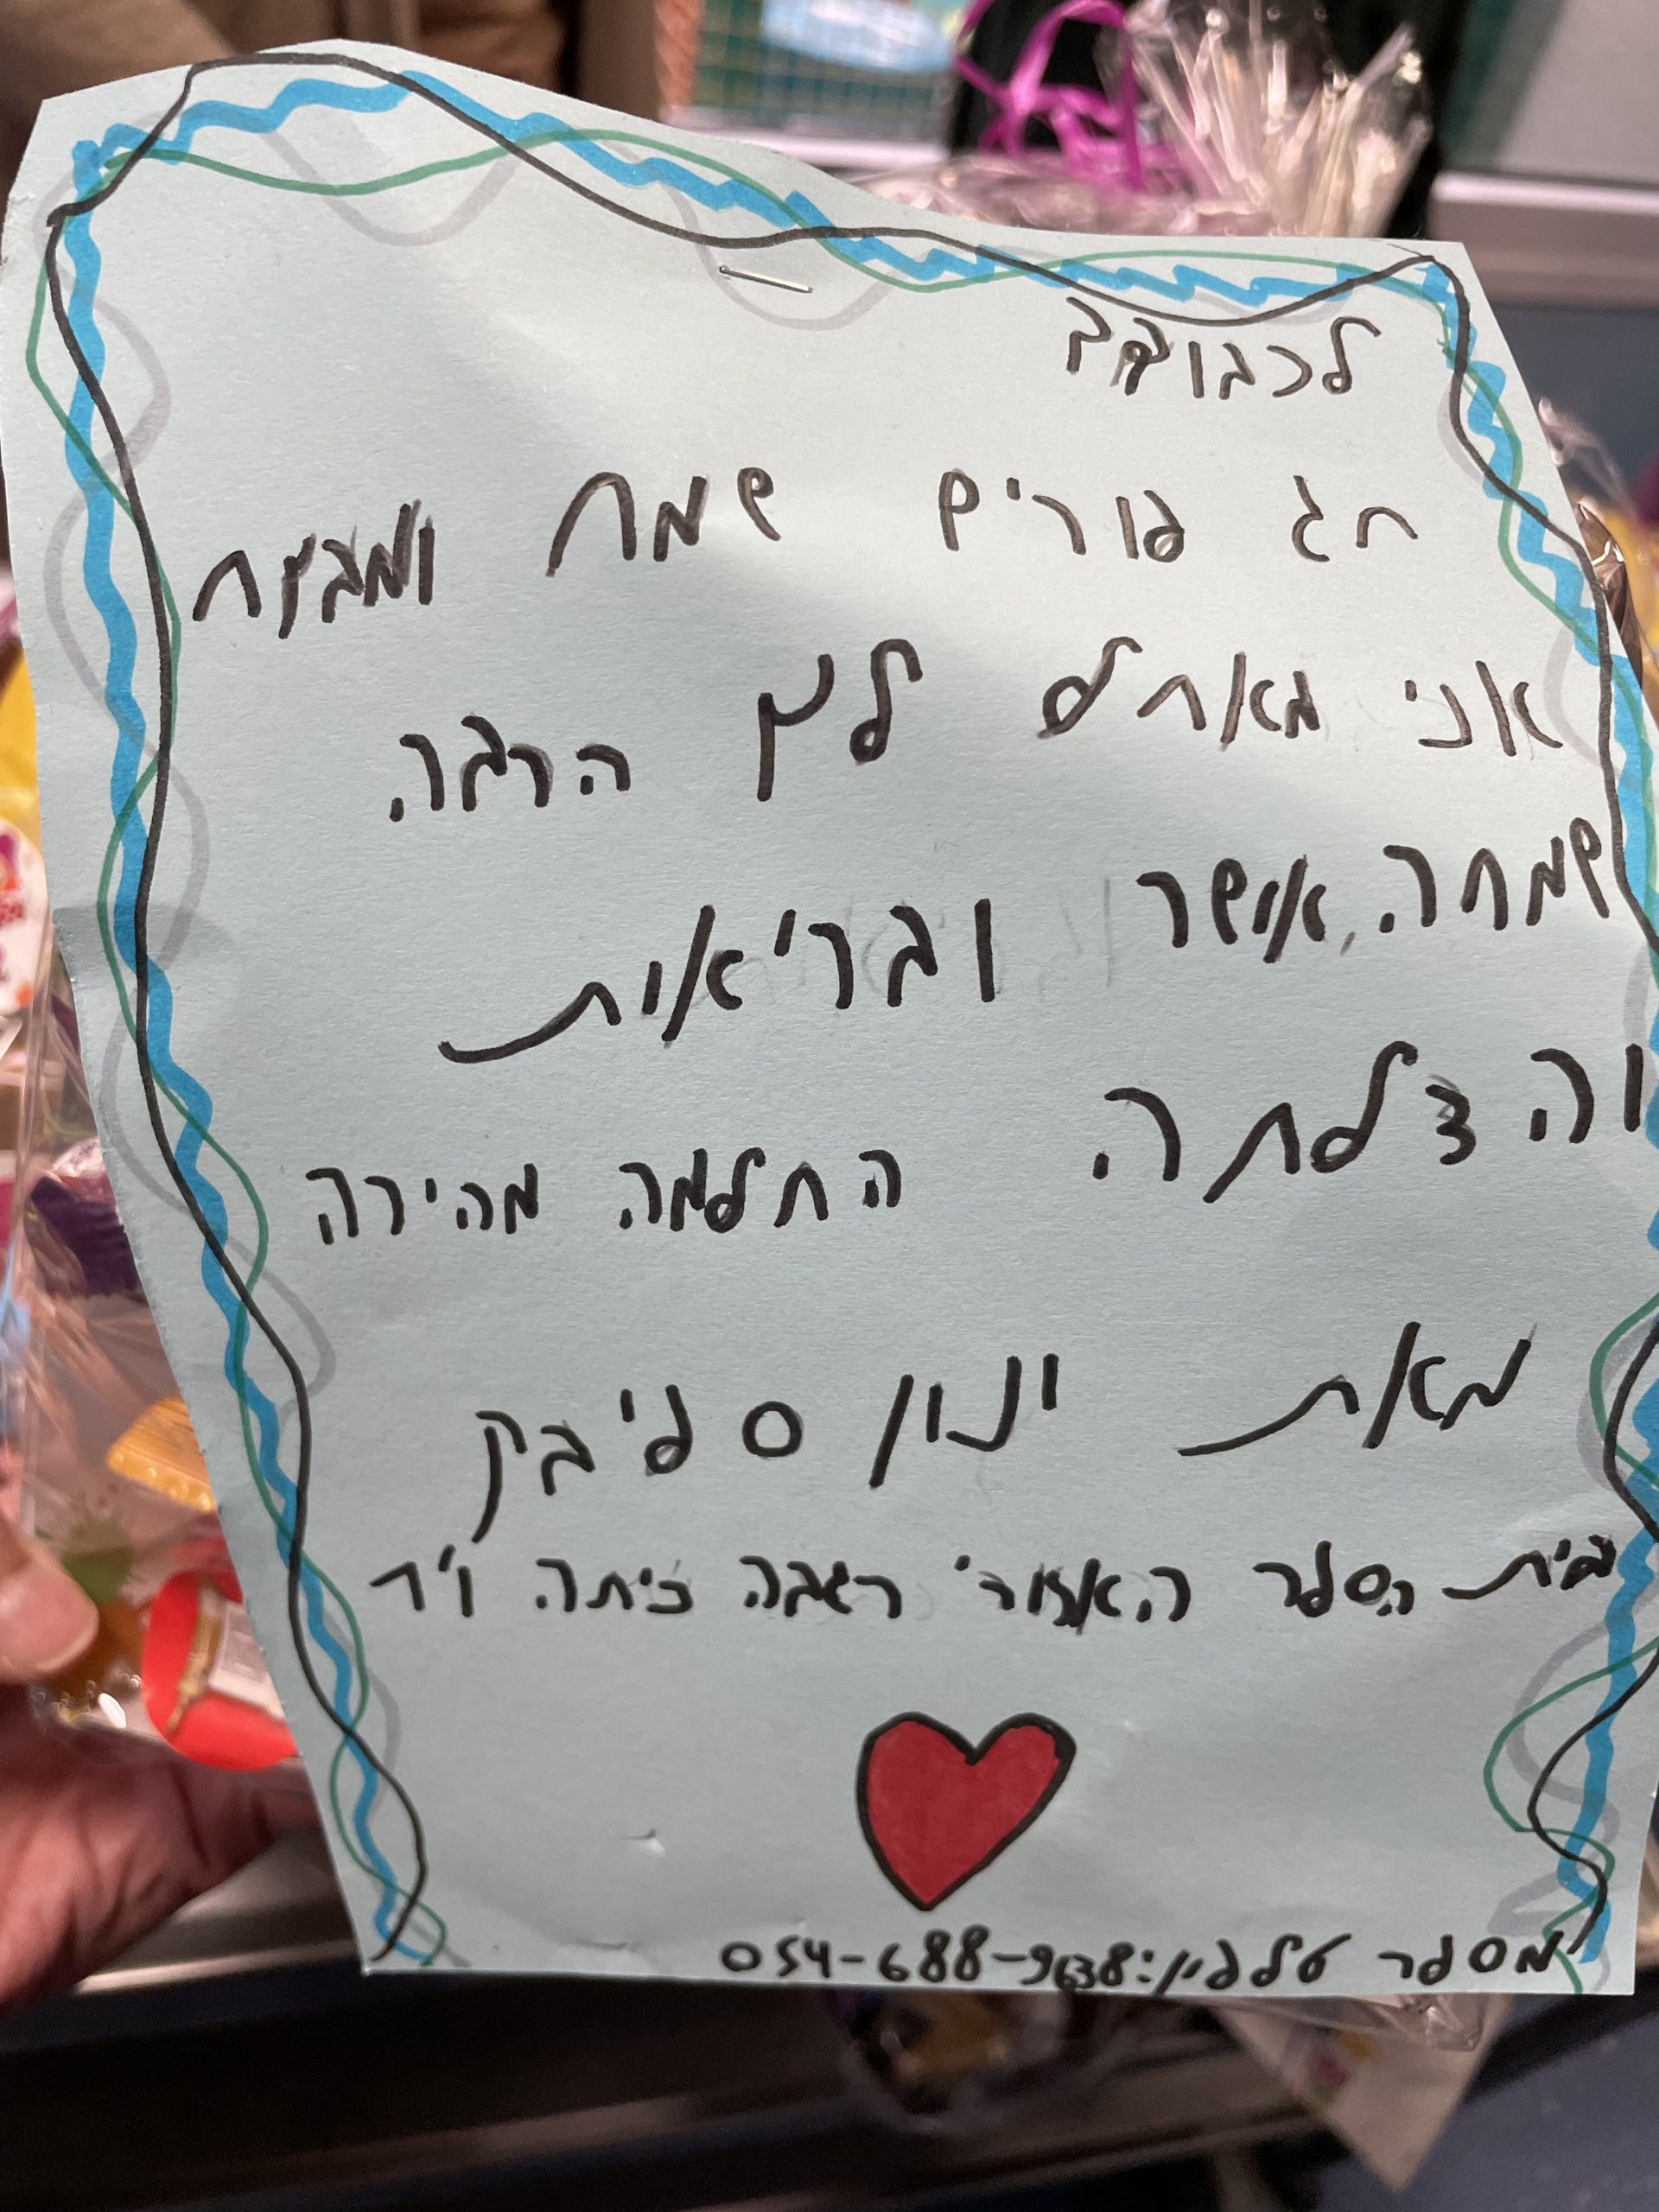 לכבוד
חג פורים שמח ומבדח
אני מאחל לך הרבה
שמחה, אושר ובריאות
והצלחה החלמה מהירה
מאת ינון ספיבק
בית הספר האזורי רגבה כיתה ו'ר
מספר טלפון: 054-688-9638